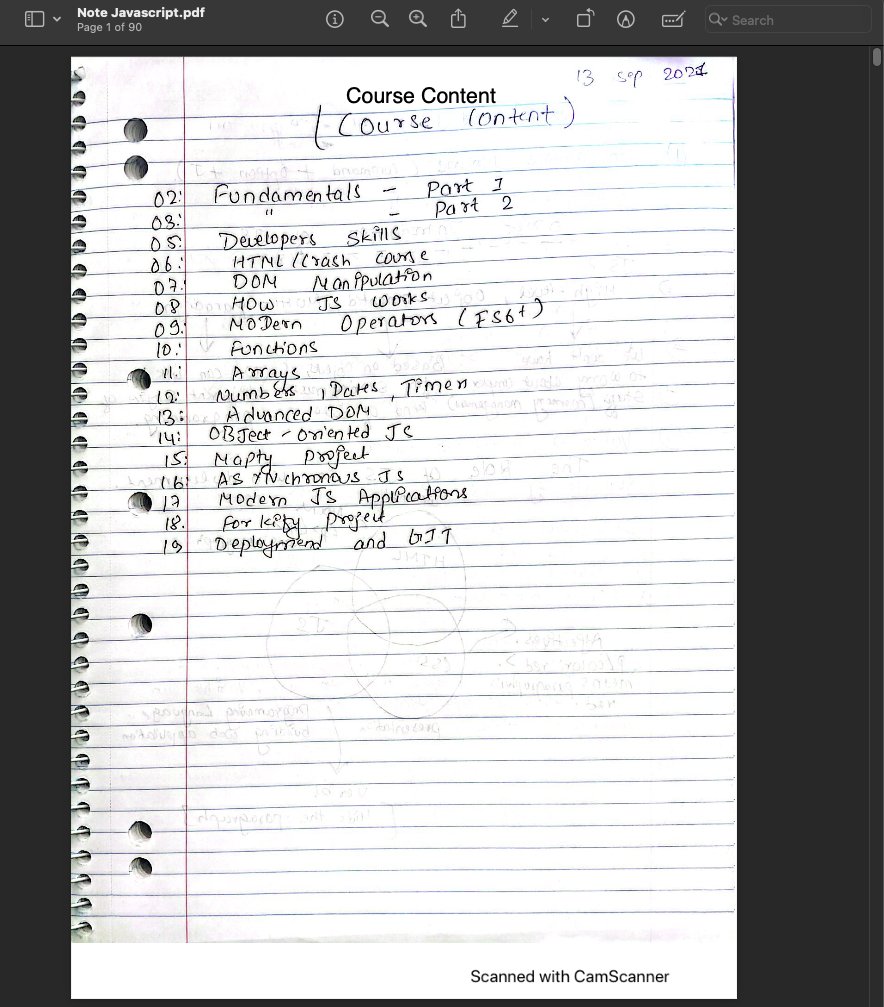 Note Javascript.pdf
Page 1 of 90
Search
13 sep 2021
Course Content
(Course Content)
02: Fundamentals - Part I
03: " - Part 2
05: Developers Skills
06: HTML/Crash Course
07: DOM Manipulation
08 HOW JS Works
09: MODern Operators (ES6+)
10: Functions
11: Arrays
12: Numbers, Dates, Timers
13: Advanced DOM
14: OBJect-oriented JS
15: Mapty Project
16: ASYNchronous JS
17 Modern JS Applications
18. Forkify Project
19 Deployment and GIT
Scanned with CamScanner